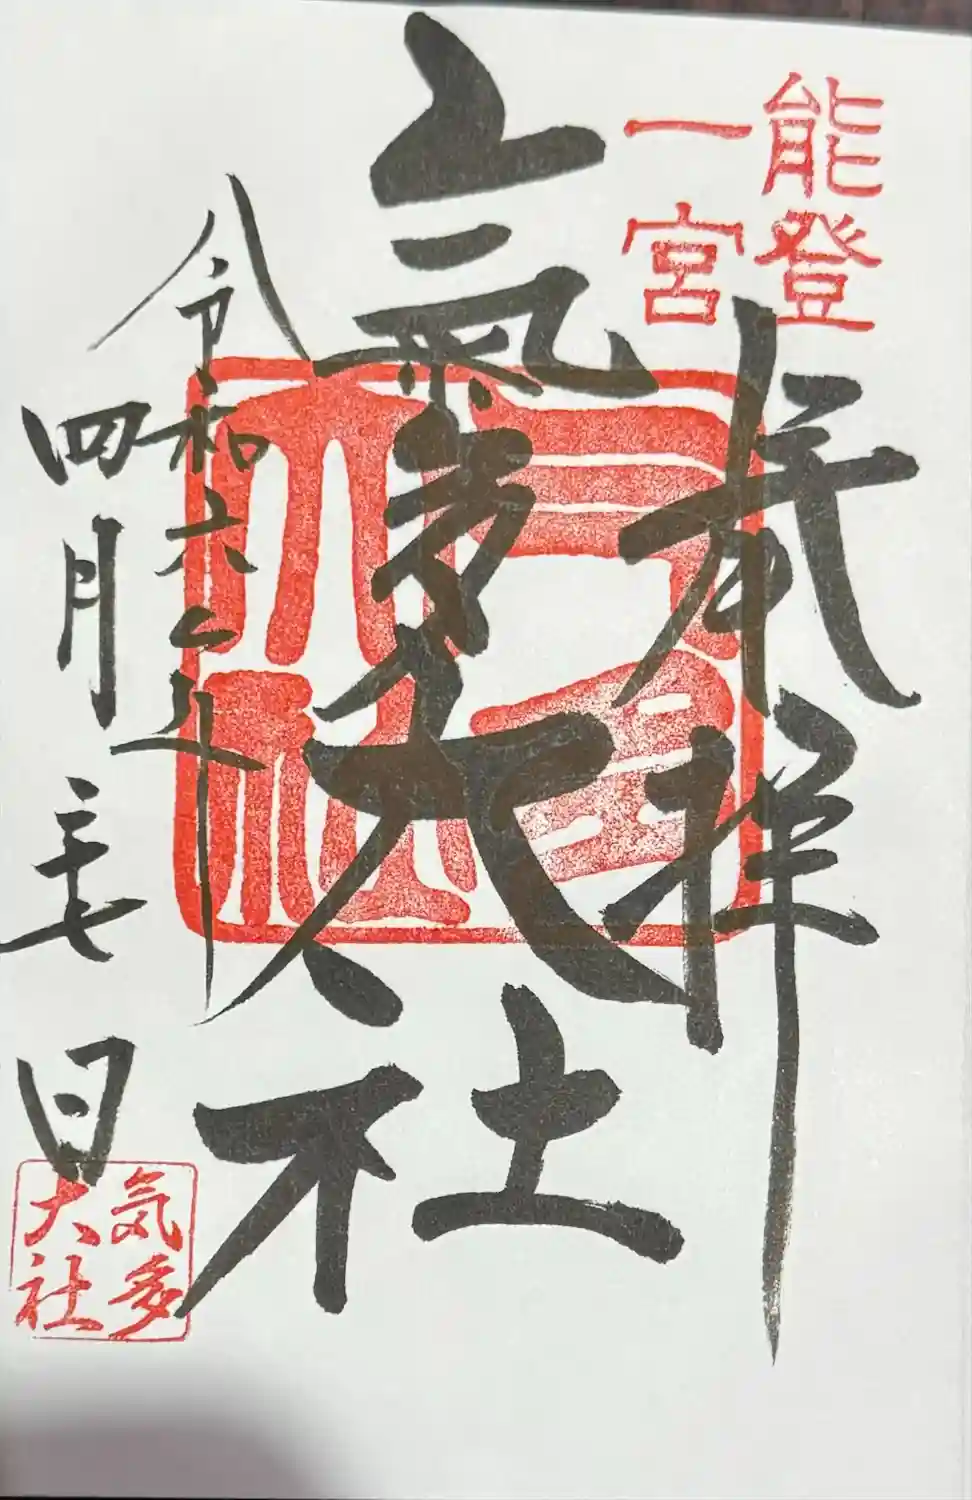 能登
一宮
奉拝
氣多大社
令和六年
四月二十七日
気多
大社